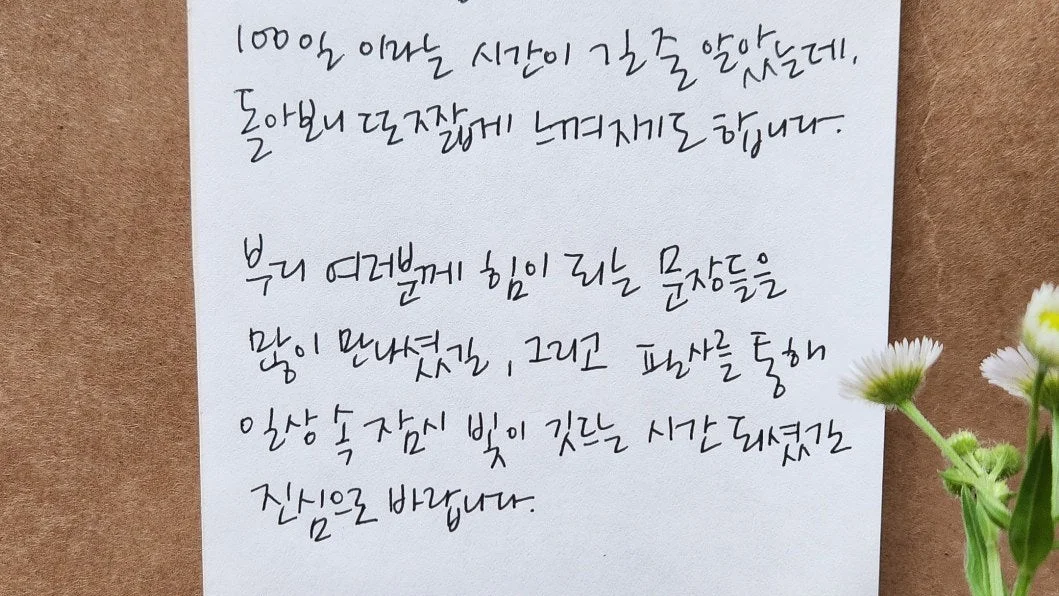 100일 이라는 시간이 길 줄 알았는데,
돌아보니 또 짧게 느껴지기도 합니다.
부디 여러분께 힘이 되는 문장들을
많이 만나셨길, 그리고 필사를 통해
일상 속 잠시 빛이 깃드는 시간 되셨길
진심으로 바랍니다.